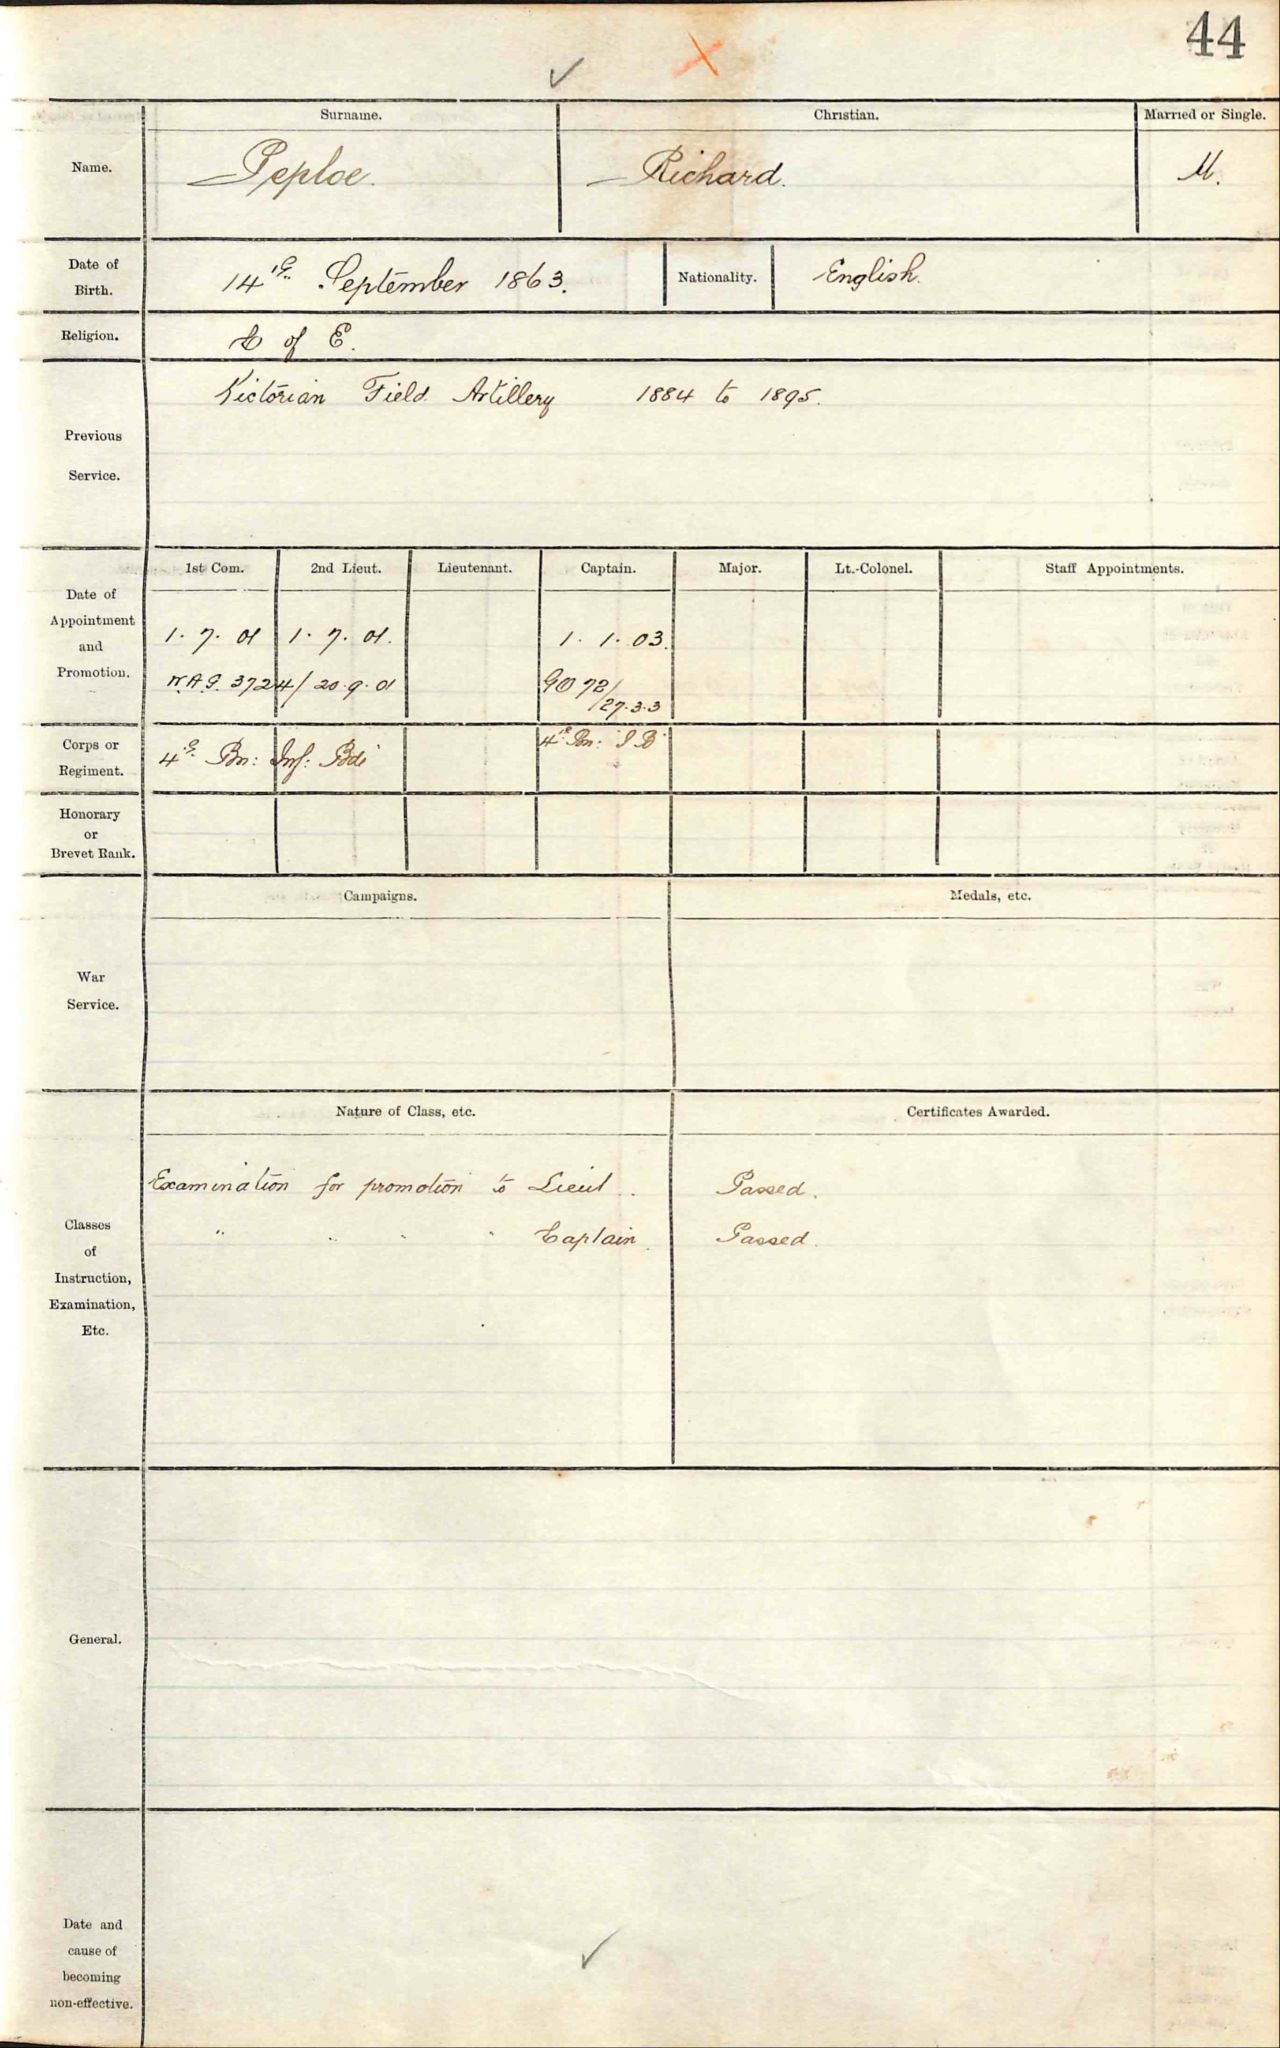 44
Surname. Christian. Married or Single.
Name. Peploe. Richard. M.
Date of Birth. 14th September 1863. Nationality. English.
Religion. C of E.
Victorian Field Artillery 1884 to 1895.
Previous
Service.
1st Com. 2nd Lieut. Lieutenant. Captain. Major. Lt.-Colonel. Staff Appointments.
Date of
Appointment
and
Promotion.
1. 7. 01 1. 7. 01. 1. 1. 03.
W.A.G. 3724/20.9.01 GO 72/27.3.3
Corps or
Regiment.
4th Bn: Inf: Bde 4th Bn: I B
Honorary
or
Brevet Rank.
Campaigns. Medals, etc.
War
Service.
Nature of Class, etc. Certificates Awarded.
Examination for promotion to Lieut. Passed.
" " " " Captain. Passed.
Classes
of
Instruction,
Examination,
Etc.
General.
Date and
cause of
becoming
non-effective.